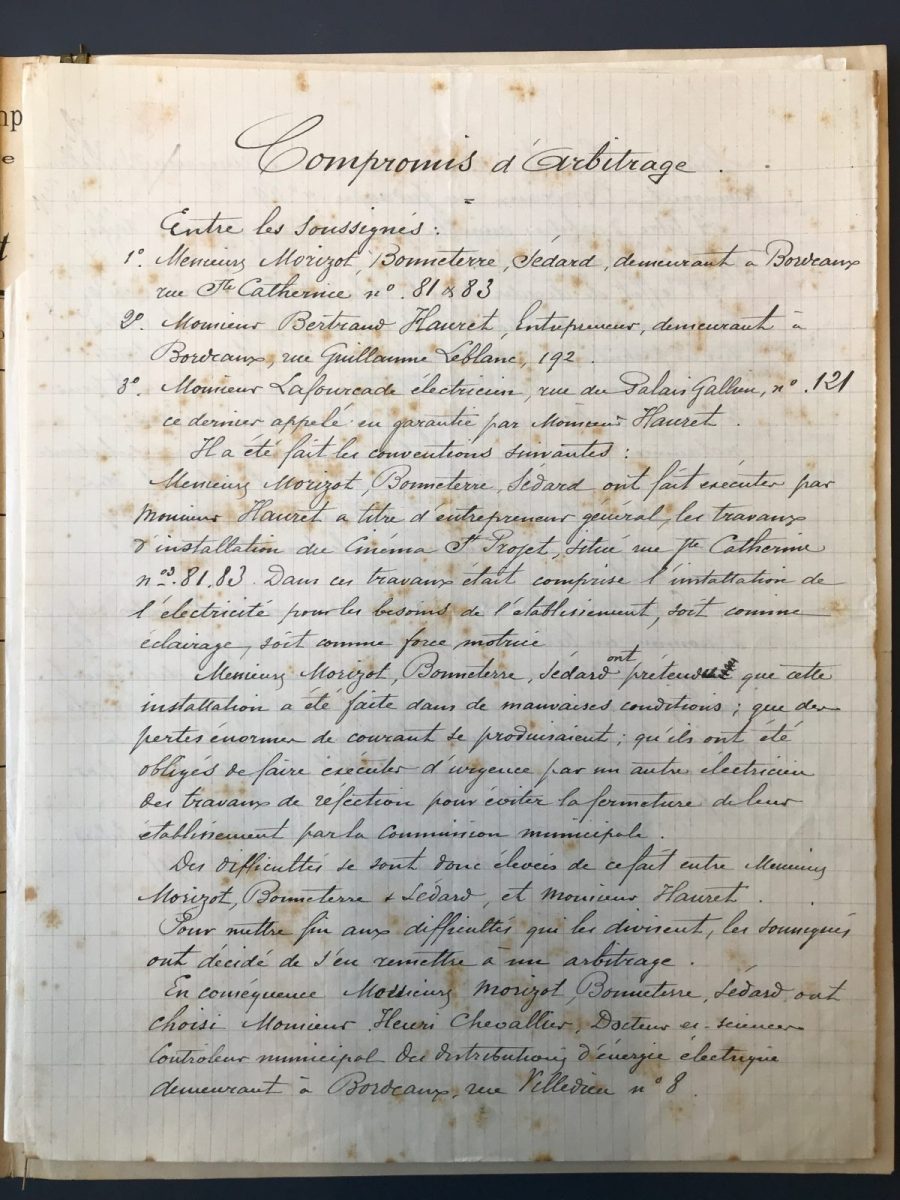 np
e
t
Compromis d'Arbitrage.
=
Entre les soussignés:
1º. Messieurs Morizot, Bonneterre, Sédard, demeurant à Bordeaux
rue Ste Catherine nº. 81 & 83
2º. Monsieur Bertrand Hauret, Entrepreneur, demeurant à
Bordeaux, rue Guillaume Leblanc, 192.
3º. Monsieur Lafourcade électricien, rue du Palais Gallien, nº. 121
ce dernier appelé en garantie par Monsieur Hauret.
Il a été fait les conventions suivantes:
Messieurs Morizot, Bonneterre, Sédard ont fait exécuter par
Monsieur Hauret a titre d'entrepreneur général, les travaux
d'installation du Cinéma St Projet, situé rue Ste Catherine
nos. 81.83. Dans ces travaux était comprise l'installation de
l'électricité pour les besoins de l'établissement, soit comme
éclairage, soit comme force motrice
Messieurs Morizot, Bonneterre, Sédard ont prétendu que cette
installation a été faite dans de mauvaises conditions; que des
pertes énormes de courant se produisaient; qu'ils ont été
obligés de faire exécuter d'urgence par un autre électricien
des travaux de réfection pour éviter la fermeture de leur
établissement par la commission municipale.
Des difficultés se sont donc élevées de ce fait entre Messieurs
Morizot, Bonneterre & Sédard, et Monsieur Hauret.
Pour mettre fin aux difficultés qui les divisent, les soussignés
ont décidé de s'en remettre à un arbitrage.
En conséquence Messieurs Morizot, Bonneterre, Sédard, ont
choisi Monsieur Henri Chevallier, Docteur es-sciences
Contrôleur municipal des distributions d'énergie électrique
demeurant à Bordeaux, rue Villedieu nº 8.